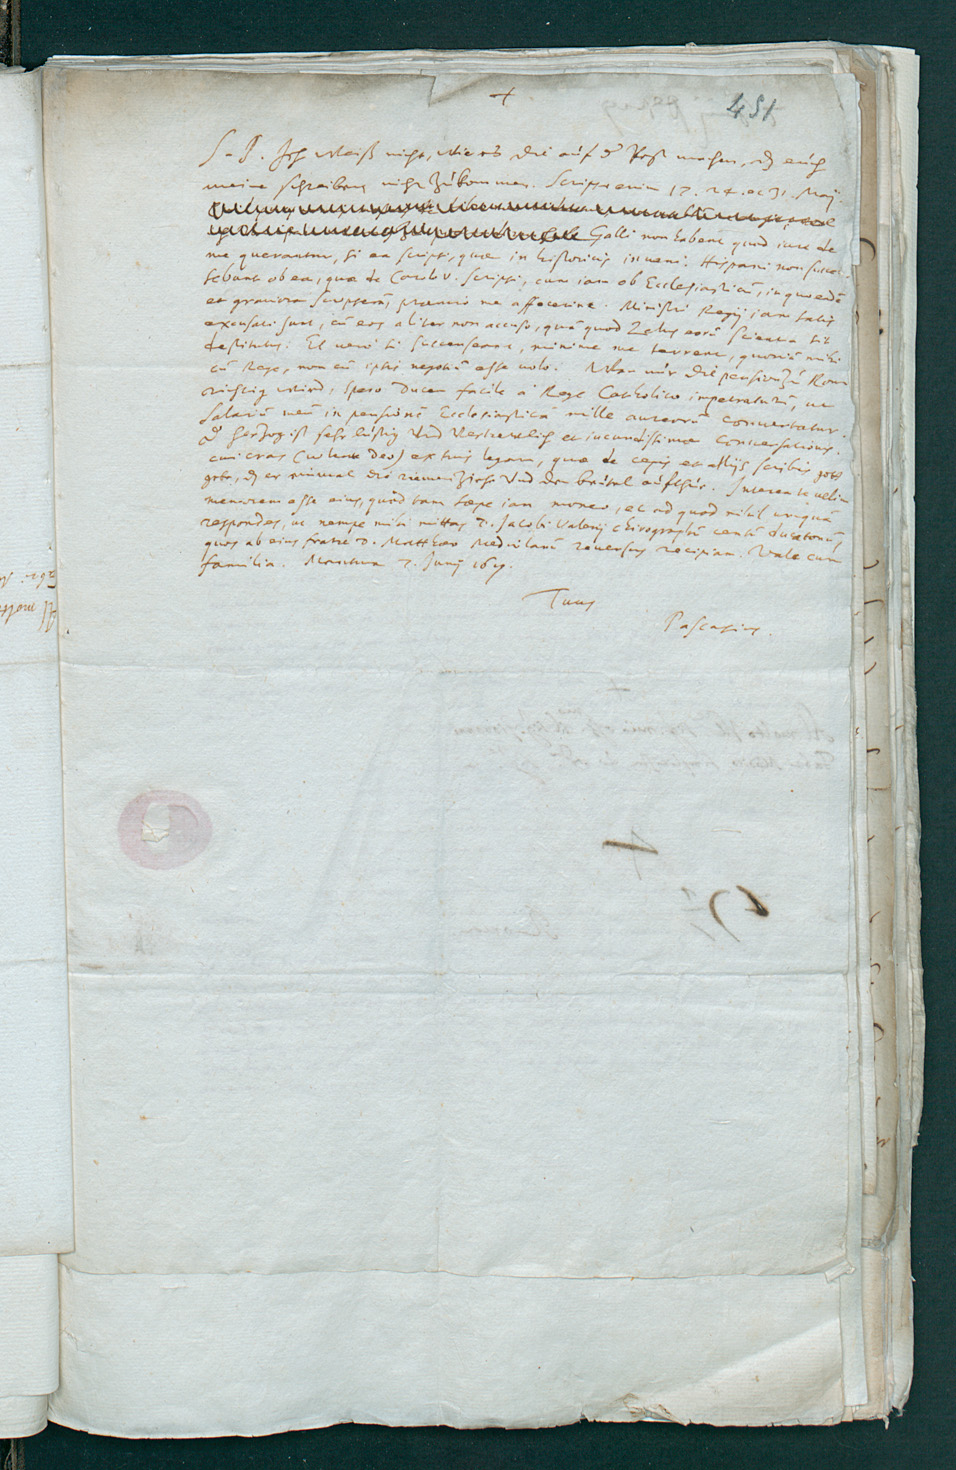 +
451
S. P. Ich Weiß nicht, Wie es die auf der Post machen, das euch
meine schreiben nicht zukommen. Scripsi enim 17. 24. et 31. Maij.
Galli non habent quod iure de
me querantur, si ea scripsi, quae in historicis inveni. Hispani non succen-
sebunt ob ea, quae de Carolo V. scripsi, cum iam ob Ecclesiasticū, in quo eadē
et graviora scripserā, praemio me affecerint. Ministri Regij iam satis
excusati sunt, cū eos aliter non accuso, quā quod Zelus eorū scientia sit
destitutus. Et vero si succenseant, minime me terrent, quoniā mihi
cū Rege, non cū ipsis negotiū esse volo. Wan mir die pension zu Rom
richtig wird, spero Ducem facile a Rege Catholico impetraturū, ut
salariū meū in pensionē Ecclesiasticā mille aureorū convertatur.
Der Herzog ist sehr lustig Und Vertreulich et iucundissimae conversationis.
cui cras (volente Deo) ex tuis legam, quae de cepis et allijs scribis. gott
gebe, das er einmal die riemen ziehe Und den beutel aufthue. Interea te velim
memorem esse eius, quod tam saepe iam moneo, et ad quod nihil unquā
respondes, ut nempe mihi mittas D. Jacobi Valerij chirographū centū ducatonū,
quos ab eius fratre D. Matthaeo Mediolanū reversus recipiam. Vale cum
familia. Mantua 7. Junij 1619.
Tuus
Pascasius.